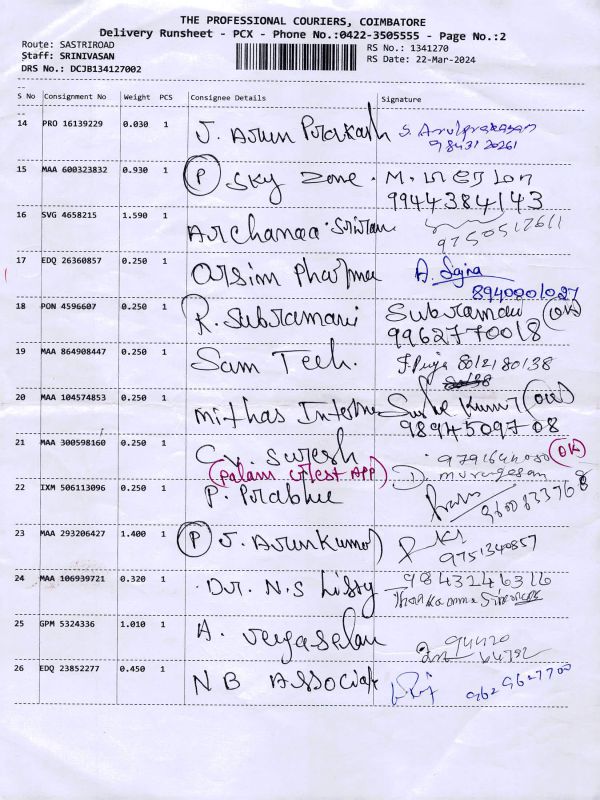 THE PROFESSIONAL COURIERS, COIMBATORE
Delivery Runsheet - PCX - Phone No.:0422-3505555 - Page No.:2
Route: SASTRIROAD RS No.: 1341270
Staff: SRINIVASAN RS Date: 22-Mar-2024
DRS No.: DCJB134127002
S No Consignment No Weight PCS Consignee Details Signature
14 PRO 16139229 0.030 1 J. Arun Prakash S. Arulprakasam
9843120261
15 MAA 600323832 0.930 1 P Sky Zone.
9944384143
16 SVG 4658215 1.590 1 Archanaa Sriram
9750512611
17 EDQ 26360857 0.250 1 Orsim Pharma A. Sajna
8940001027
18 PON 4596607 0.250 1 R. Subramani Subramani OK
9962770018
19 MAA 864908447 0.250 1 Sam Tech. 8012180138
20 MAA 104574853 0.250 1 Mithas Interime Kumar
9894509708
21 MAA 300598160 0.250 1 C.V. Suresh OK
(Palam Crest APP) D. murugesan
22 IXM 506113096 0.250 1 P. Prabhu
23 MAA 293206427 1.400 1 P J. Arunkumar
9751340857
24 MAA 106939721 0.320 1 Dr. N.S Lissy 9843246316
25 GPM 5324336 1.010 1 A.
26 EDQ 23852277 0.450 1 N B Associat 9629627700